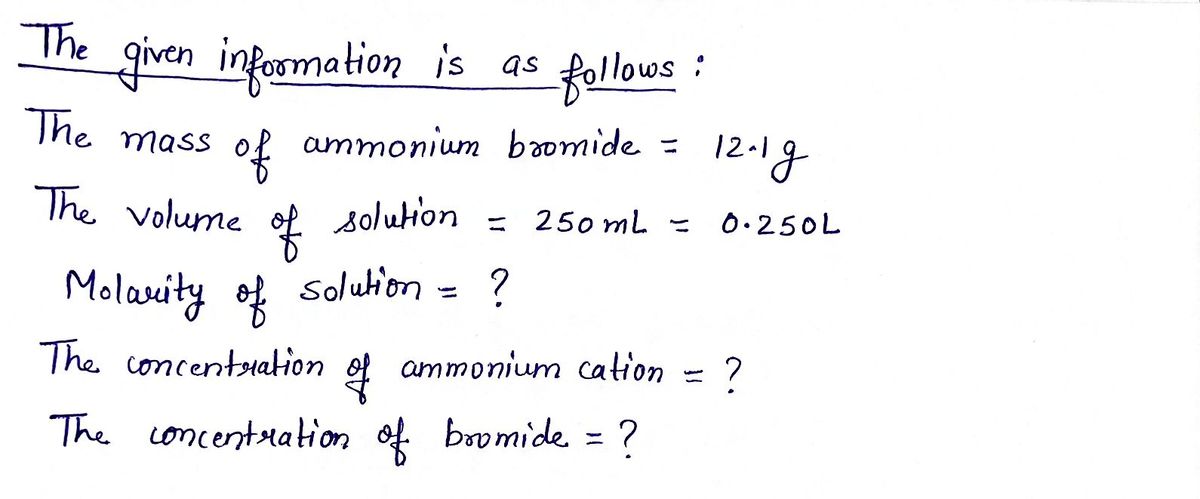 The given information is as follows :
The mass of ammonium bromide = 12.1 g
The volume of solution = 250 mL = 0.250L
Molarity of solution = ?
The concentration of ammonium cation = ?
The concentration of bromide = ?